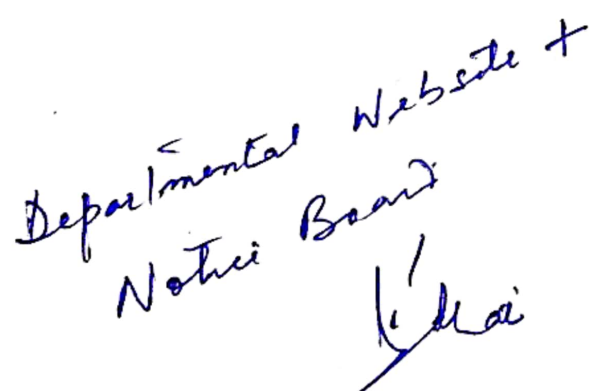 Departmental Website +
Notice Board